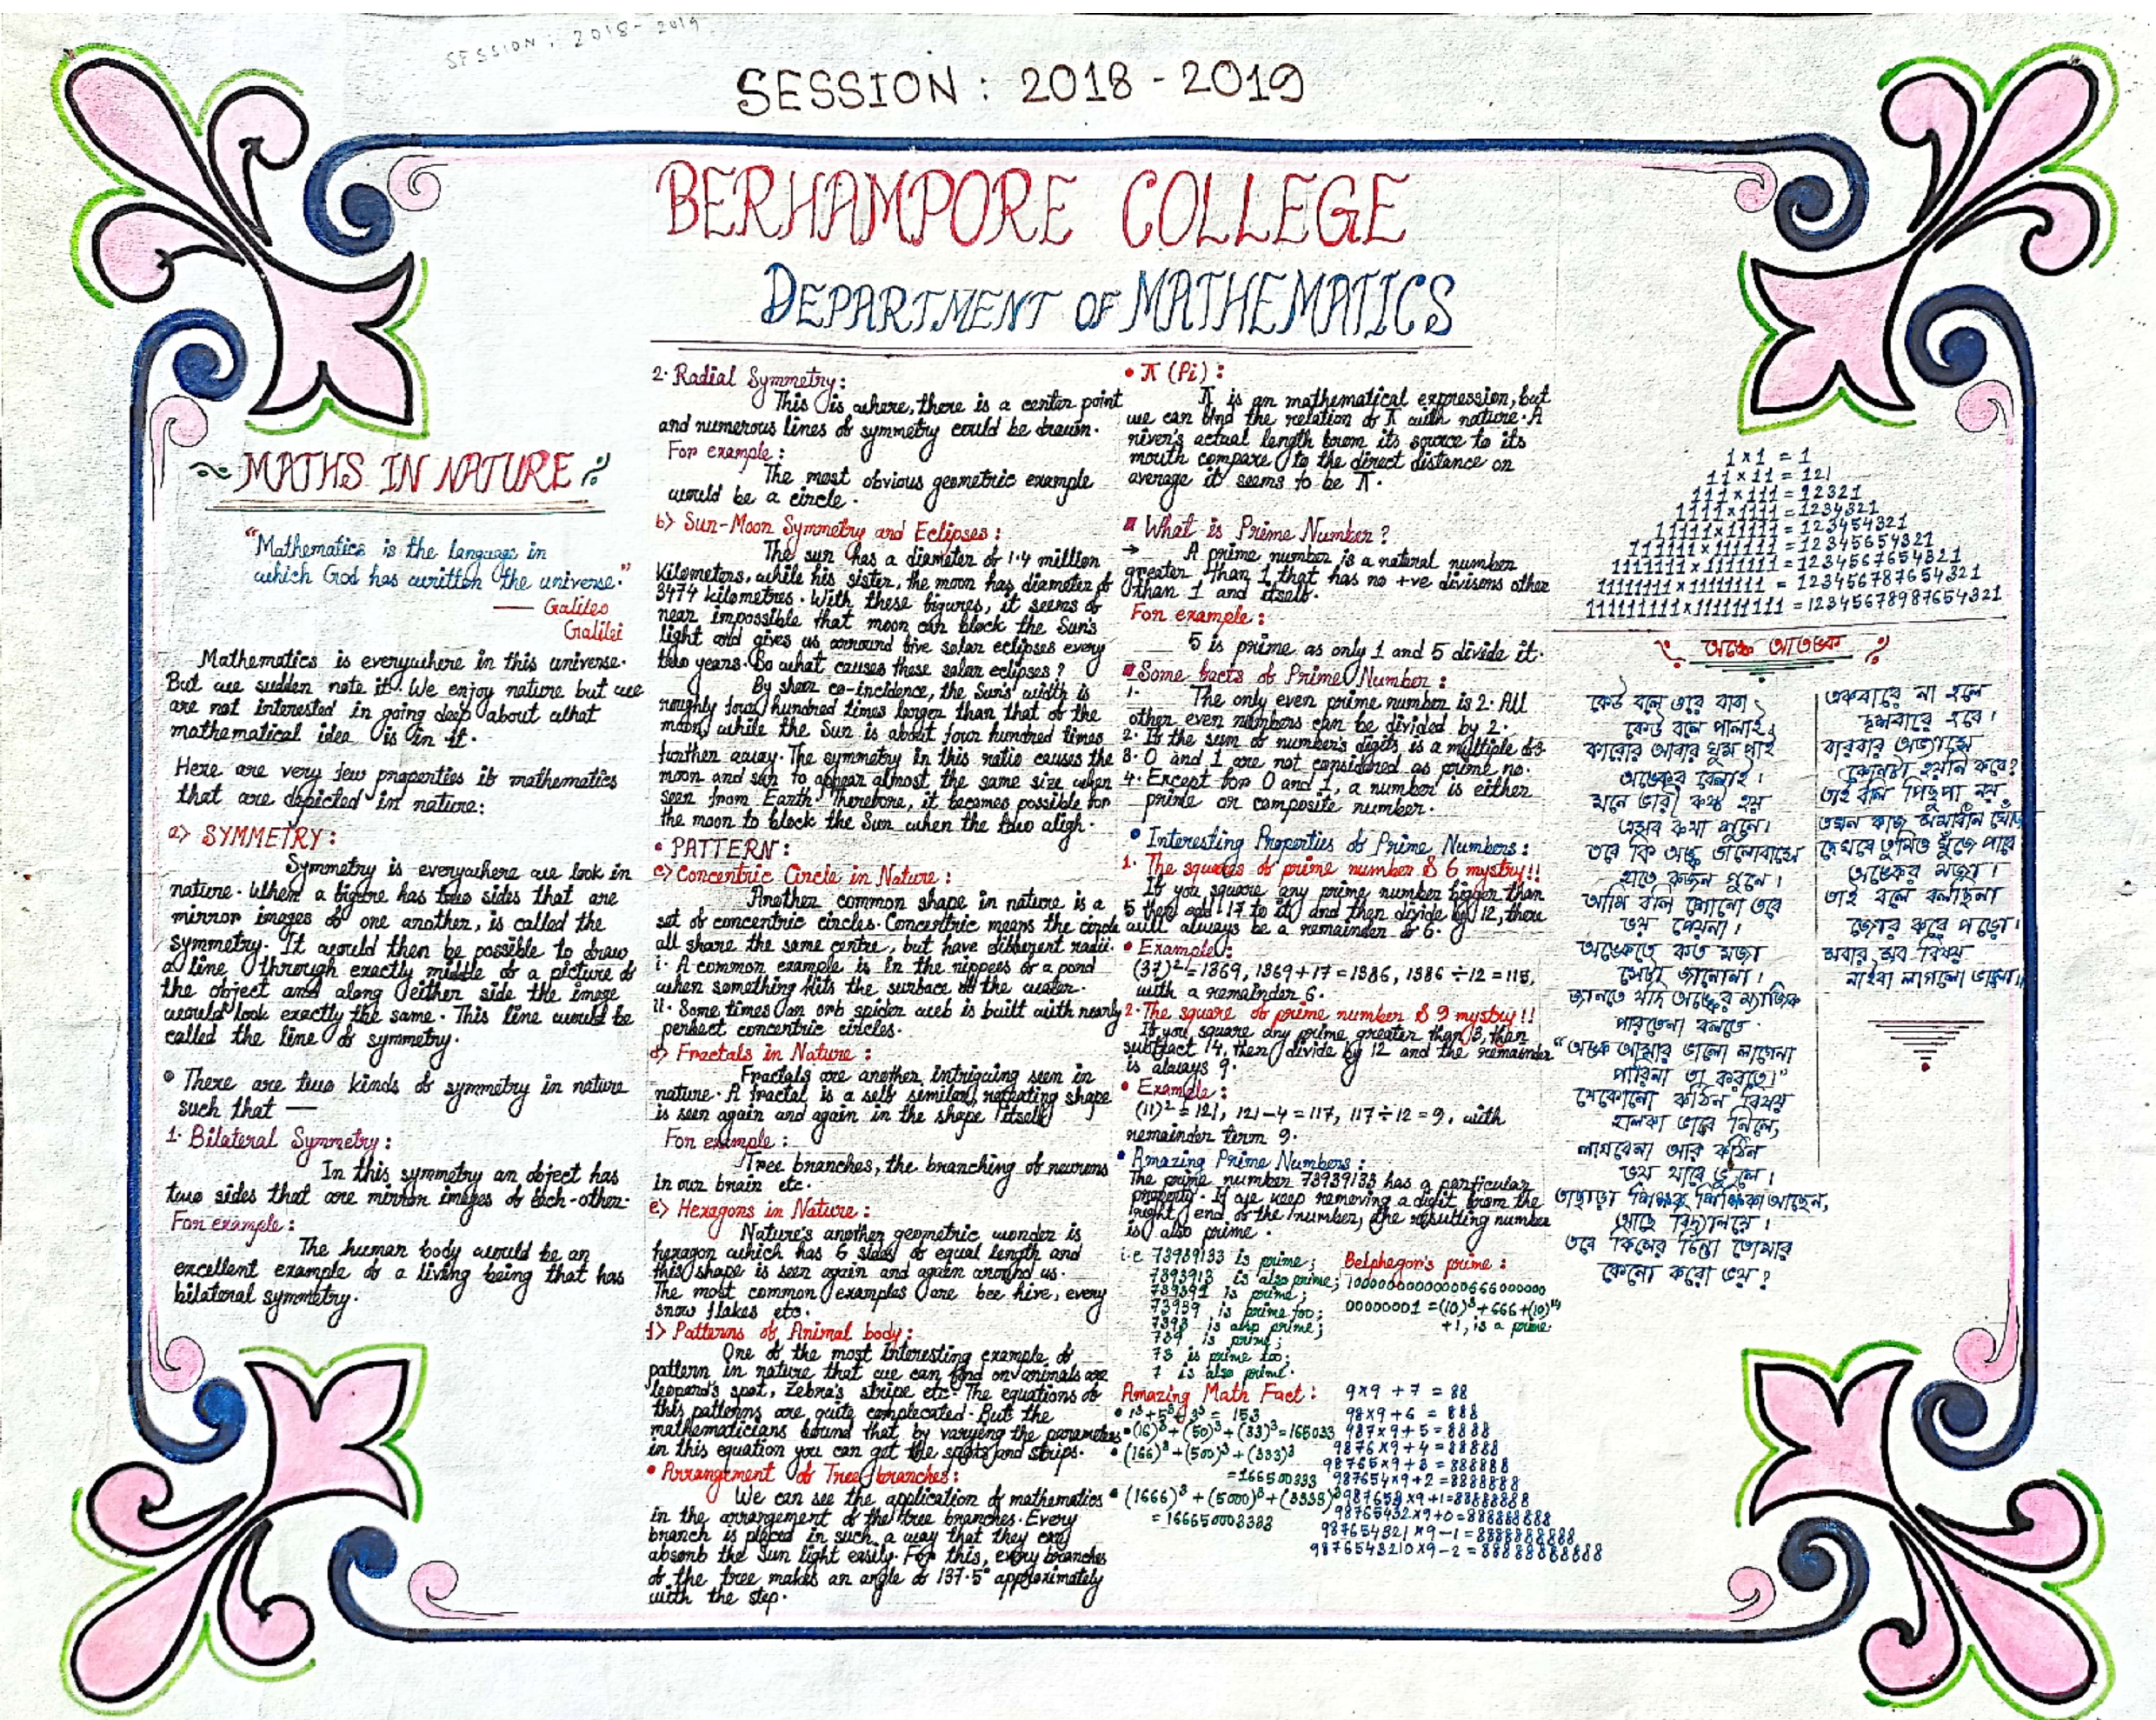 SESSION : 2018-2019
SESSION : 2018-2019
BERHAMPORE COLLEGE
DEPARTMENT OF MATHEMATICS
MATHS IN NATURE
"Mathematics is the language in
which God has written the universe."
— Galileo
Galilei
Mathematics is everywhere in this universe.
But we sudden note it. We enjoy nature but we
are not interested in going deep about what
mathematical idea is in it.
Here are very few properties if mathematics
that are depicted in nature:
a> SYMMETRY:
Symmetry is everywhere we look in
nature. When a figure has two sides that are
mirror images of one another, is called the
symmetry. It would then be possible to draw
a line through exactly middle of a picture of
the object and along either side the image
would look exactly the same. This line would be
called the line of symmetry.
• There are two kinds of symmetry in nature
such that —
1. Bilateral Symmetry:
In this symmetry an object has
two sides that are mirror images of each-other.
For example:
The human body would be an
excellent example of a living being that has
bilateral symmetry.
2. Radial Symmetry:
This is where, there is a center point
and numerous lines of symmetry could be drawn.
For example:
The most obvious geometric example
would be a circle.
b> Sun-Moon Symmetry and Eclipses:
The sun has a diameter of 1.4 million
Kilometers, while his sister, the moon has diameter of
3474 kilometres. With these figures, it seems of
near impossible that moon can block the Sun's
light and gives us arround five solar eclipses every
two years. So what causes these solar eclipses?
By shear co-incidence, the Sun's width is
roughly four hundred times larger than that of the
moon, while the Sun is about four hundred times
further away. The symmetry in this ratio causes the
moon and sun to appear almost the same size when
seen from Earth. Therefore, it becomes possible for
the moon to block the Sun when the two aligh.
• PATTERN:
c> Concentric Circle in Nature:
Another common shape in nature is a
set of concentric circles. Concentric means the circle
all share the same centre, but have different radii.
i. A common example is in the rippees of a pond
when something hits the surface of the water.
ii. Some times an orb spider web is built with nearly
perfect concentric circles.
d> Fractals in Nature:
Fractals are another intriguing seen in
nature. A fractal is a self similar, repeating shape
is seen again and again in the shape itself.
For example:
Tree branches, the branching of neurons
in our brain etc.
e> Hexagons in Nature:
Nature's another geometric wonder is
hexagon which has 6 sides of equal length and
this shape is seen again and again around us.
The most common examples are bee hive, every
snow flakes etc.
f> Patterns of Animal body:
One of the most interesting example of
pattern in nature that we can find on animals are
leopard's spot, Zebra's stripe etc. The equations of
this patterns are quite complecated. But the
mathematicians found that by varyeng the parameters
in this equation you can get the spots and strips.
• Arrangement of Tree branches:
We can see the application of mathematics
in the arrangement of the tree branches. Every
branch is placed in such a way that they can
absorb the Sun light easily. For this, every branches
of the tree makes an angle of 137.5° approximately
with the step.
• π (Pi):
π is an mathematical expression, but
we can find the relation of π with nature. A
river's actual length from its source to its
mouth compare to the direct distance on
average it seems to be π.
What is Prime Number?
→ A prime number is a natural number
greater than 1 that has no +ve divisors other
than 1 and itself.
For example:
5 is prime as only 1 and 5 divide it.
Some facts of Prime Number:
1. The only even prime number is 2. All
other even numbers can be divided by 2.
2. If the sum of number's digits is a multiple of 3.
3. 0 and 1 are not considered as prime no.
4. Except for 0 and 1, a number is either
prime or composite number.
• Interesting Properties of Prime Numbers:
1. The squares of prime number & 6 mystry!!
If you square any prime number bigger than
5 then add 17 to it, and then divide by 12, there
will always be a remainder of 6.
• Example:
(37)² = 1369, 1369+17 = 1386, 1386 ÷ 12 = 115,
with a remainder 6.
2. The square of prime number & 9 mystry!!
If you square any prime greater than 3, then
subtract 14, then divide by 12 and the remainder
is always 9.
• Example:
(11)² = 121, 121-4 = 117, 117 ÷ 12 = 9, with
remainder term 9.
• Amazing Prime Numbers:
The prime number 73939133 has a particular
property. If we keep removing a digit from the
right end of the number, the resulting number
is also prime.
i.e 73939133 is prime;
7393913 is also prime;
739391 is prime;
73939 is prime too;
7393 is also prime;
739 is prime;
73 is prime too;
7 is also prime.
Belphegor's prime:
+1, is a prime.
Amazing Math Fact:
• 1³+5³+3³ = 153
• (16)³+(50)³+(33)³ = 165033
• (166)³+(500)³+(333)³
= 166500333
• (1666)³+(5000)³+(3333)³
= 166650003333
9×9+7 = 88
98×9+6 = 888
987×9+5 = 8888
9876×9+4 = 88888
98765×9+3 = 888888
987654×9+2 = 8888888
9876543×9+1 = 88888888
98765432×9+0 = 888888888
987654321×9-1 = 8888888888
9876543210×9-2 = 88888888888
1×1 = 1
11×11 = 121
111×111 = 12321
1111×1111 = 1234321
11111×11111 = 123454321
111111×111111 = 12345654321
1111111×1111111 = 1234567654321
11111111×11111111 = 123456787654321
111111111×111111111 = 12345678987654321
অঙ্কে আতঙ্ক
কেউ বলে ওরে বাবা,
কেউ বলে পালাই,
কারোর আবার ঘুম পাই
অঙ্কের বেলাই।
মনে ভারী কষ্ট হয়
এসব কথা শুনে।
তবে কি অঙ্ক ভালোবাসে
হাতে কজন গুনে।
আমি বলি শোনো তবে
ভয় পেয়না।
অঙ্কেতে কত মজা
সেটা জানোনা।
জানতে যদি অঙ্কের ম্যাজিক
পারতেনা বলতে
"অঙ্ক আমার ভালো লাগেনা
পারিনা তা করতে।"
যেকোনো কঠিন বিষয়
হালকা ভাবে নিলে,
লাগবেনা আর কঠিন
ভয় যাবে ভুলে।
তাছাড়া শিক্ষক শিক্ষিকা আছেন,
আছে বিদ্যালয়ে।
তবে কিসের চিন্তা তোমার
কেনো করো ভয়?
একবারে না হলে
দশবারে হবে।
বারবার অভ্যাসে
কোনটা হয়নি কবে?
তাই বলি পিছুপা নয়
এমন কাজ সমাধান
দেখবে তুমিও খুঁজে পাবে
অঙ্কের মজা।
তাই বলে বলছিনা
জোর করে পড়ো।
সবার সব বিষয়
নাইবা লাগলো ভালো।